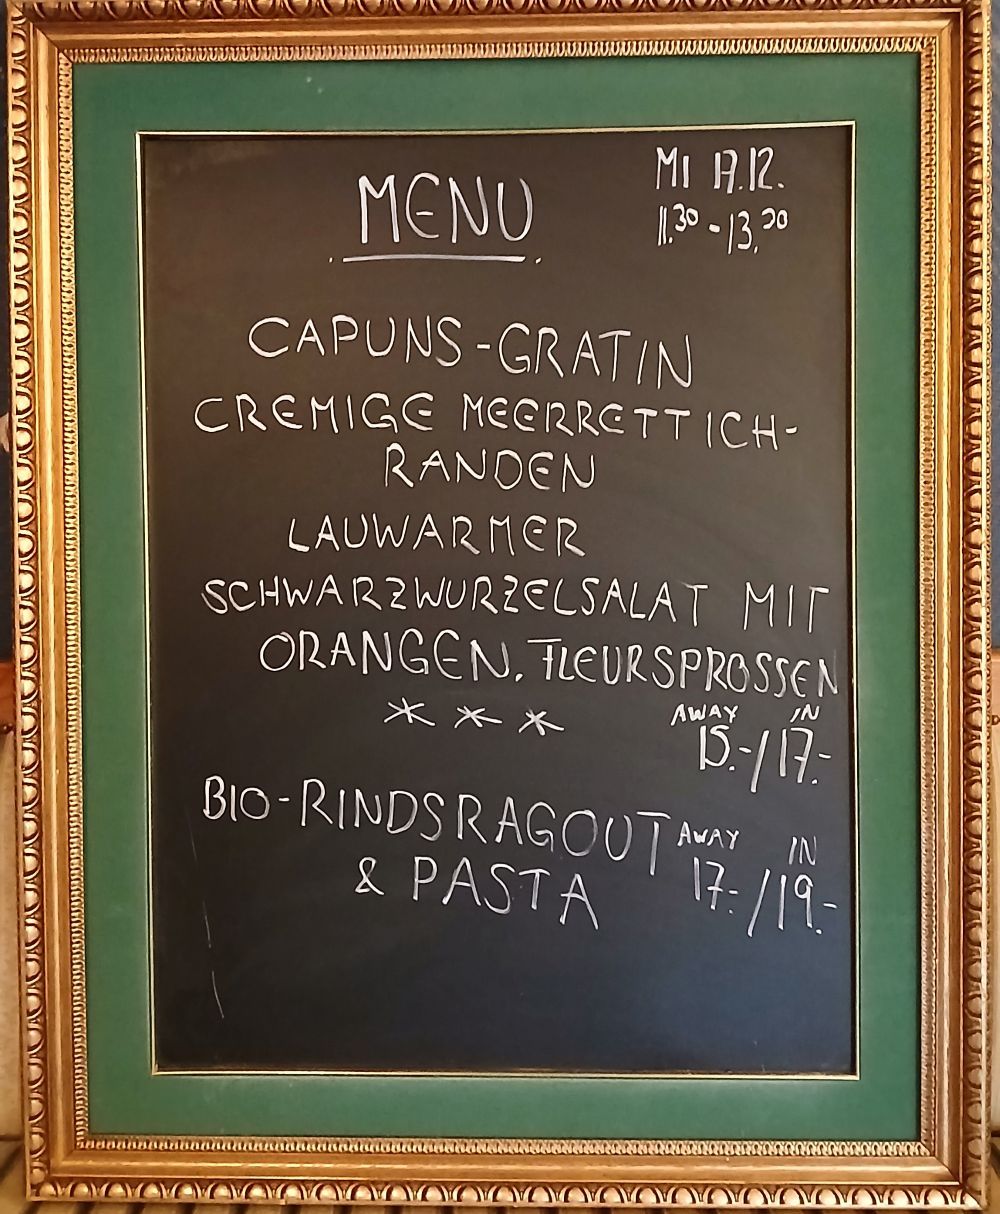 MENU
MI 17.12.
11.30 - 13.20
CAPUNS-GRATIN
CREMIGE MEERRETTICH-
RANDEN
LAUWARMER
SCHWARZWURZELSALAT MIT
ORANGEN, FLEURSPROSSEN
* * *
AWAY IN
15.-/17.-
BIO-RINDSRAGOUT
& PASTA
AWAY IN
17.-/19.-